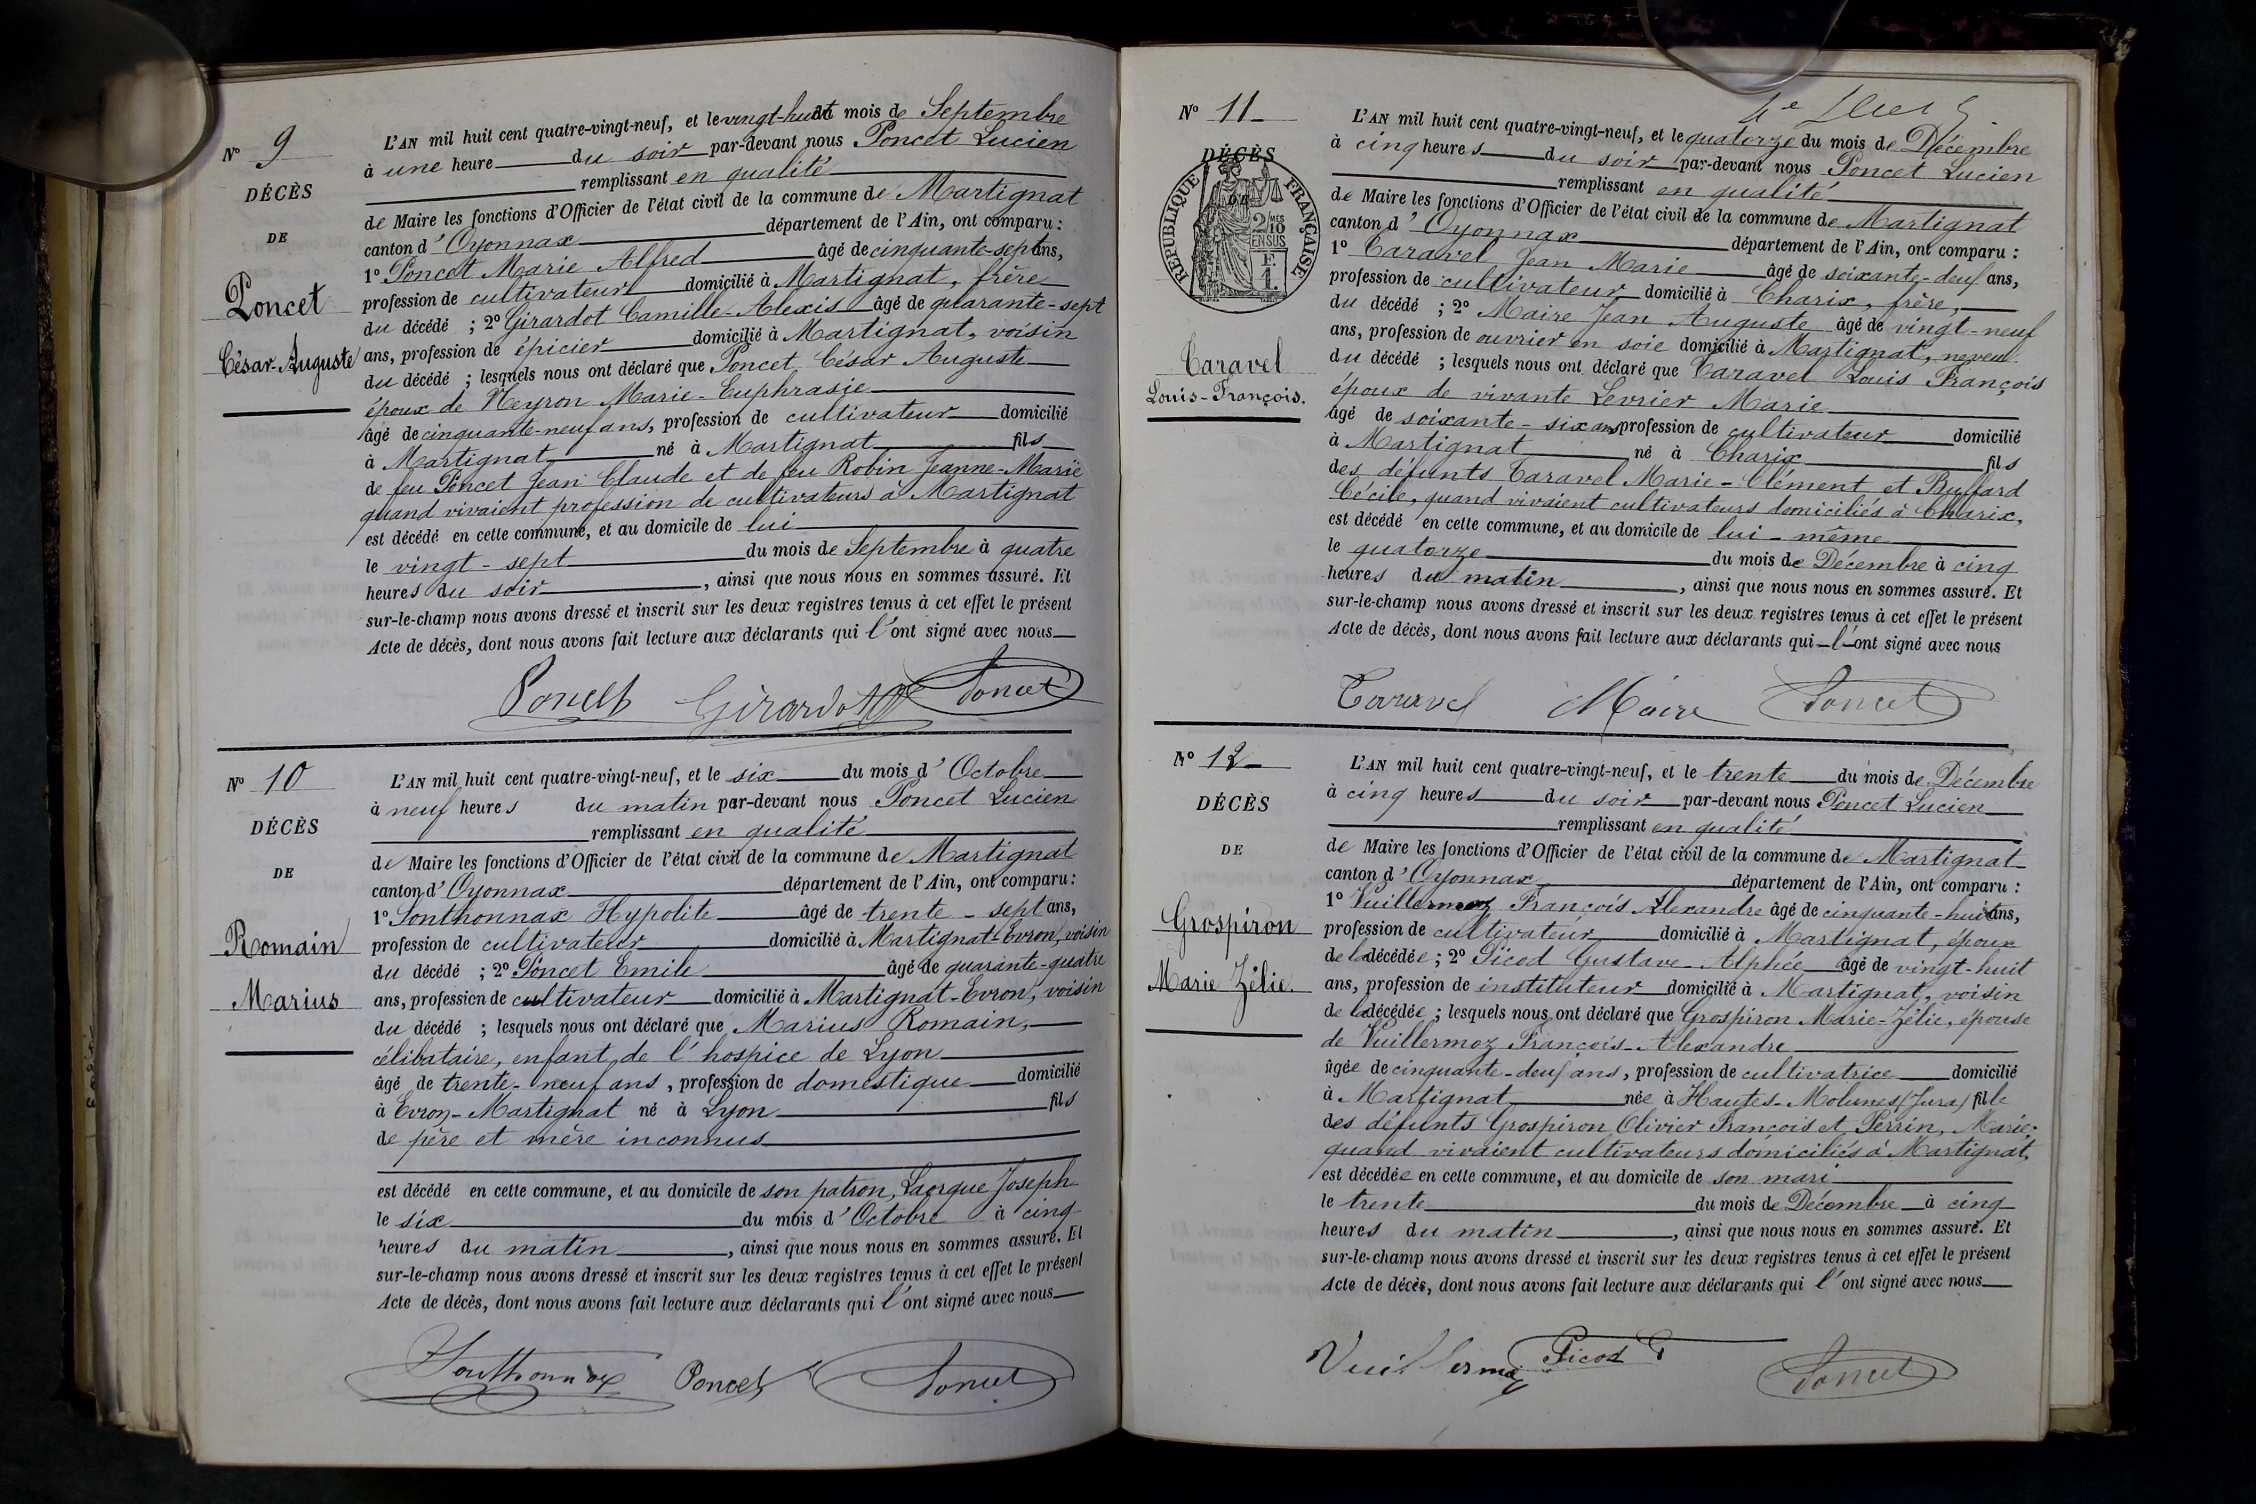 N° 9
DÉCÈS
DE
Poncet
César-Auguste
L'AN mil huit cent quatre-vingt-neuf, et le vingt-huit du mois de Septembre
à une heure du soir par-devant nous Poncet Lucien
remplissant en qualité
de Maire les fonctions d'Officier de l'état civil de la commune de Martignat
canton d'Oyonnax département de l'Ain, ont comparu :
1° Poncet Marie Alfred âgé de cinquante-sept ans,
profession de cultivateur domicilié à Martignat, frère
du décédé ; 2° Girardot Camille-Alexis âgé de quarante-sept
ans, profession de épicier domicilié à Martignat, voisin
du décédé ; lesquels nous ont déclaré que Poncet César Auguste
époux de Neyron Marie-Euphrasie
âgé de cinquante-neuf ans, profession de cultivateur domicilié
à Martignat né à Martignat fils
de feu Poncet Jean Claude et de feu Robin Jeanne-Marie
quand vivaient profession de cultivateurs à Martignat
est décédé en cette commune, et au domicile de lui
le vingt-sept du mois de Septembre à quatre
heures du soir, ainsi que nous nous en sommes assuré. Et
sur-le-champ nous avons dressé et inscrit sur les deux registres tenus à cet effet le présent
Acte de décès, dont nous avons fait lecture aux déclarants qui l'ont signé avec nous
Poncet Girardot Poncet
N° 10
DÉCÈS
DE
Romain
Marius
L'AN mil huit cent quatre-vingt-neuf, et le six du mois d'Octobre
à neuf heures du matin par-devant nous Poncet Lucien
remplissant en qualité
de Maire les fonctions d'Officier de l'état civil de la commune de Martignat
canton d'Oyonnax département de l'Ain, ont comparu :
1° Sonthonnax Hypolite âgé de trente-sept ans,
profession de cultivateur domicilié à Martignat-Evron, voisin
du décédé ; 2° Poncet Emile âgé de quarante-quatre
ans, profession de cultivateur domicilié à Martignat-Evron, voisin
du décédé ; lesquels nous ont déclaré que Marius Romain,
célibataire, enfant de l'hospice de Lyon
âgé de trente-neuf ans, profession de domestique domicilié
à Evron-Martignat né à Lyon fils
de père et mère inconnus
est décédé en cette commune, et au domicile de son patron, Lacrque Joseph
le six du mois d'Octobre à cinq
heures du matin, ainsi que nous nous en sommes assuré. Et
sur-le-champ nous avons dressé et inscrit sur les deux registres tenus à cet effet le présent
Acte de décès, dont nous avons fait lecture aux déclarants qui l'ont signé avec nous
Sonthonnax Poncet Poncet
N° 11
DÉCÈS
DE
RÉPUBLIQUE FRANÇAISE
2/10 EN SUS
F. 1.
Taravel
Louis-François.
L'AN mil huit cent quatre-vingt-neuf, et le quatorze du mois de Décembre
à cinq heures du soir par-devant nous Poncet Lucien
remplissant en qualité
de Maire les fonctions d'Officier de l'état civil de la commune de Martignat
canton d'Oyonnax département de l'Ain, ont comparu :
1° Taravel Jean Marie âgé de soixante-deux ans,
profession de cultivateur domicilié à Charix, frère,
du décédé ; 2° Maire Jean Auguste âgé de vingt-neuf
ans, profession de ouvrier en soie domicilié à Martignat, neveu
du décédé ; lesquels nous ont déclaré que Taravel Louis François
époux de vivante Levrier Marie
âgé de soixante-six ans profession de cultivateur domicilié
à Martignat né à Charix fils
des défunts Taravel Marie-Clément et Buffard
Cécile, quand vivaient cultivateurs domiciliés à Charix,
est décédé en cette commune, et au domicile de lui-même
le quatorze du mois de Décembre à cinq
heures du matin, ainsi que nous nous en sommes assuré. Et
sur-le-champ nous avons dressé et inscrit sur les deux registres tenus à cet effet le présent
Acte de décès, dont nous avons fait lecture aux déclarants qui l'ont signé avec nous
Taravel Maire Poncet
N° 12
DÉCÈS
DE
Grospiron
Marie Zélie.
L'AN mil huit cent quatre-vingt-neuf, et le trente du mois de Décembre
à cinq heures du soir par-devant nous Poncet Lucien
remplissant en qualité
de Maire les fonctions d'Officier de l'état civil de la commune de Martignat
canton d'Oyonnax département de l'Ain, ont comparu :
1° Vuillermoz François Alexandre âgé de cinquante-huit ans,
profession de cultivateur domicilié à Martignat, époux
de la décédée ; 2° Picod Gustave-Alphée âgé de vingt-huit
ans, profession de instituteur domicilié à Martignat, voisin
de la décédée ; lesquels nous ont déclaré que Grospiron Marie-Zélie, épouse
de Vuillermoz François-Alexandre
âgée de cinquante-deux ans, profession de cultivatrice domicilié
à Martignat née à Hautes-Molunes (Jura) fille
des défunts Grospiron Olivier François et Perrin, Marie,
quand vivaient cultivateurs domiciliés à Martignat,
est décédée en cette commune, et au domicile de son mari
le trente du mois de Décembre à cinq
heures du matin, ainsi que nous nous en sommes assuré. Et
sur-le-champ nous avons dressé et inscrit sur les deux registres tenus à cet effet le présent
Acte de décès, dont nous avons fait lecture aux déclarants qui l'ont signé avec nous
Vuillermoz Picod G Poncet